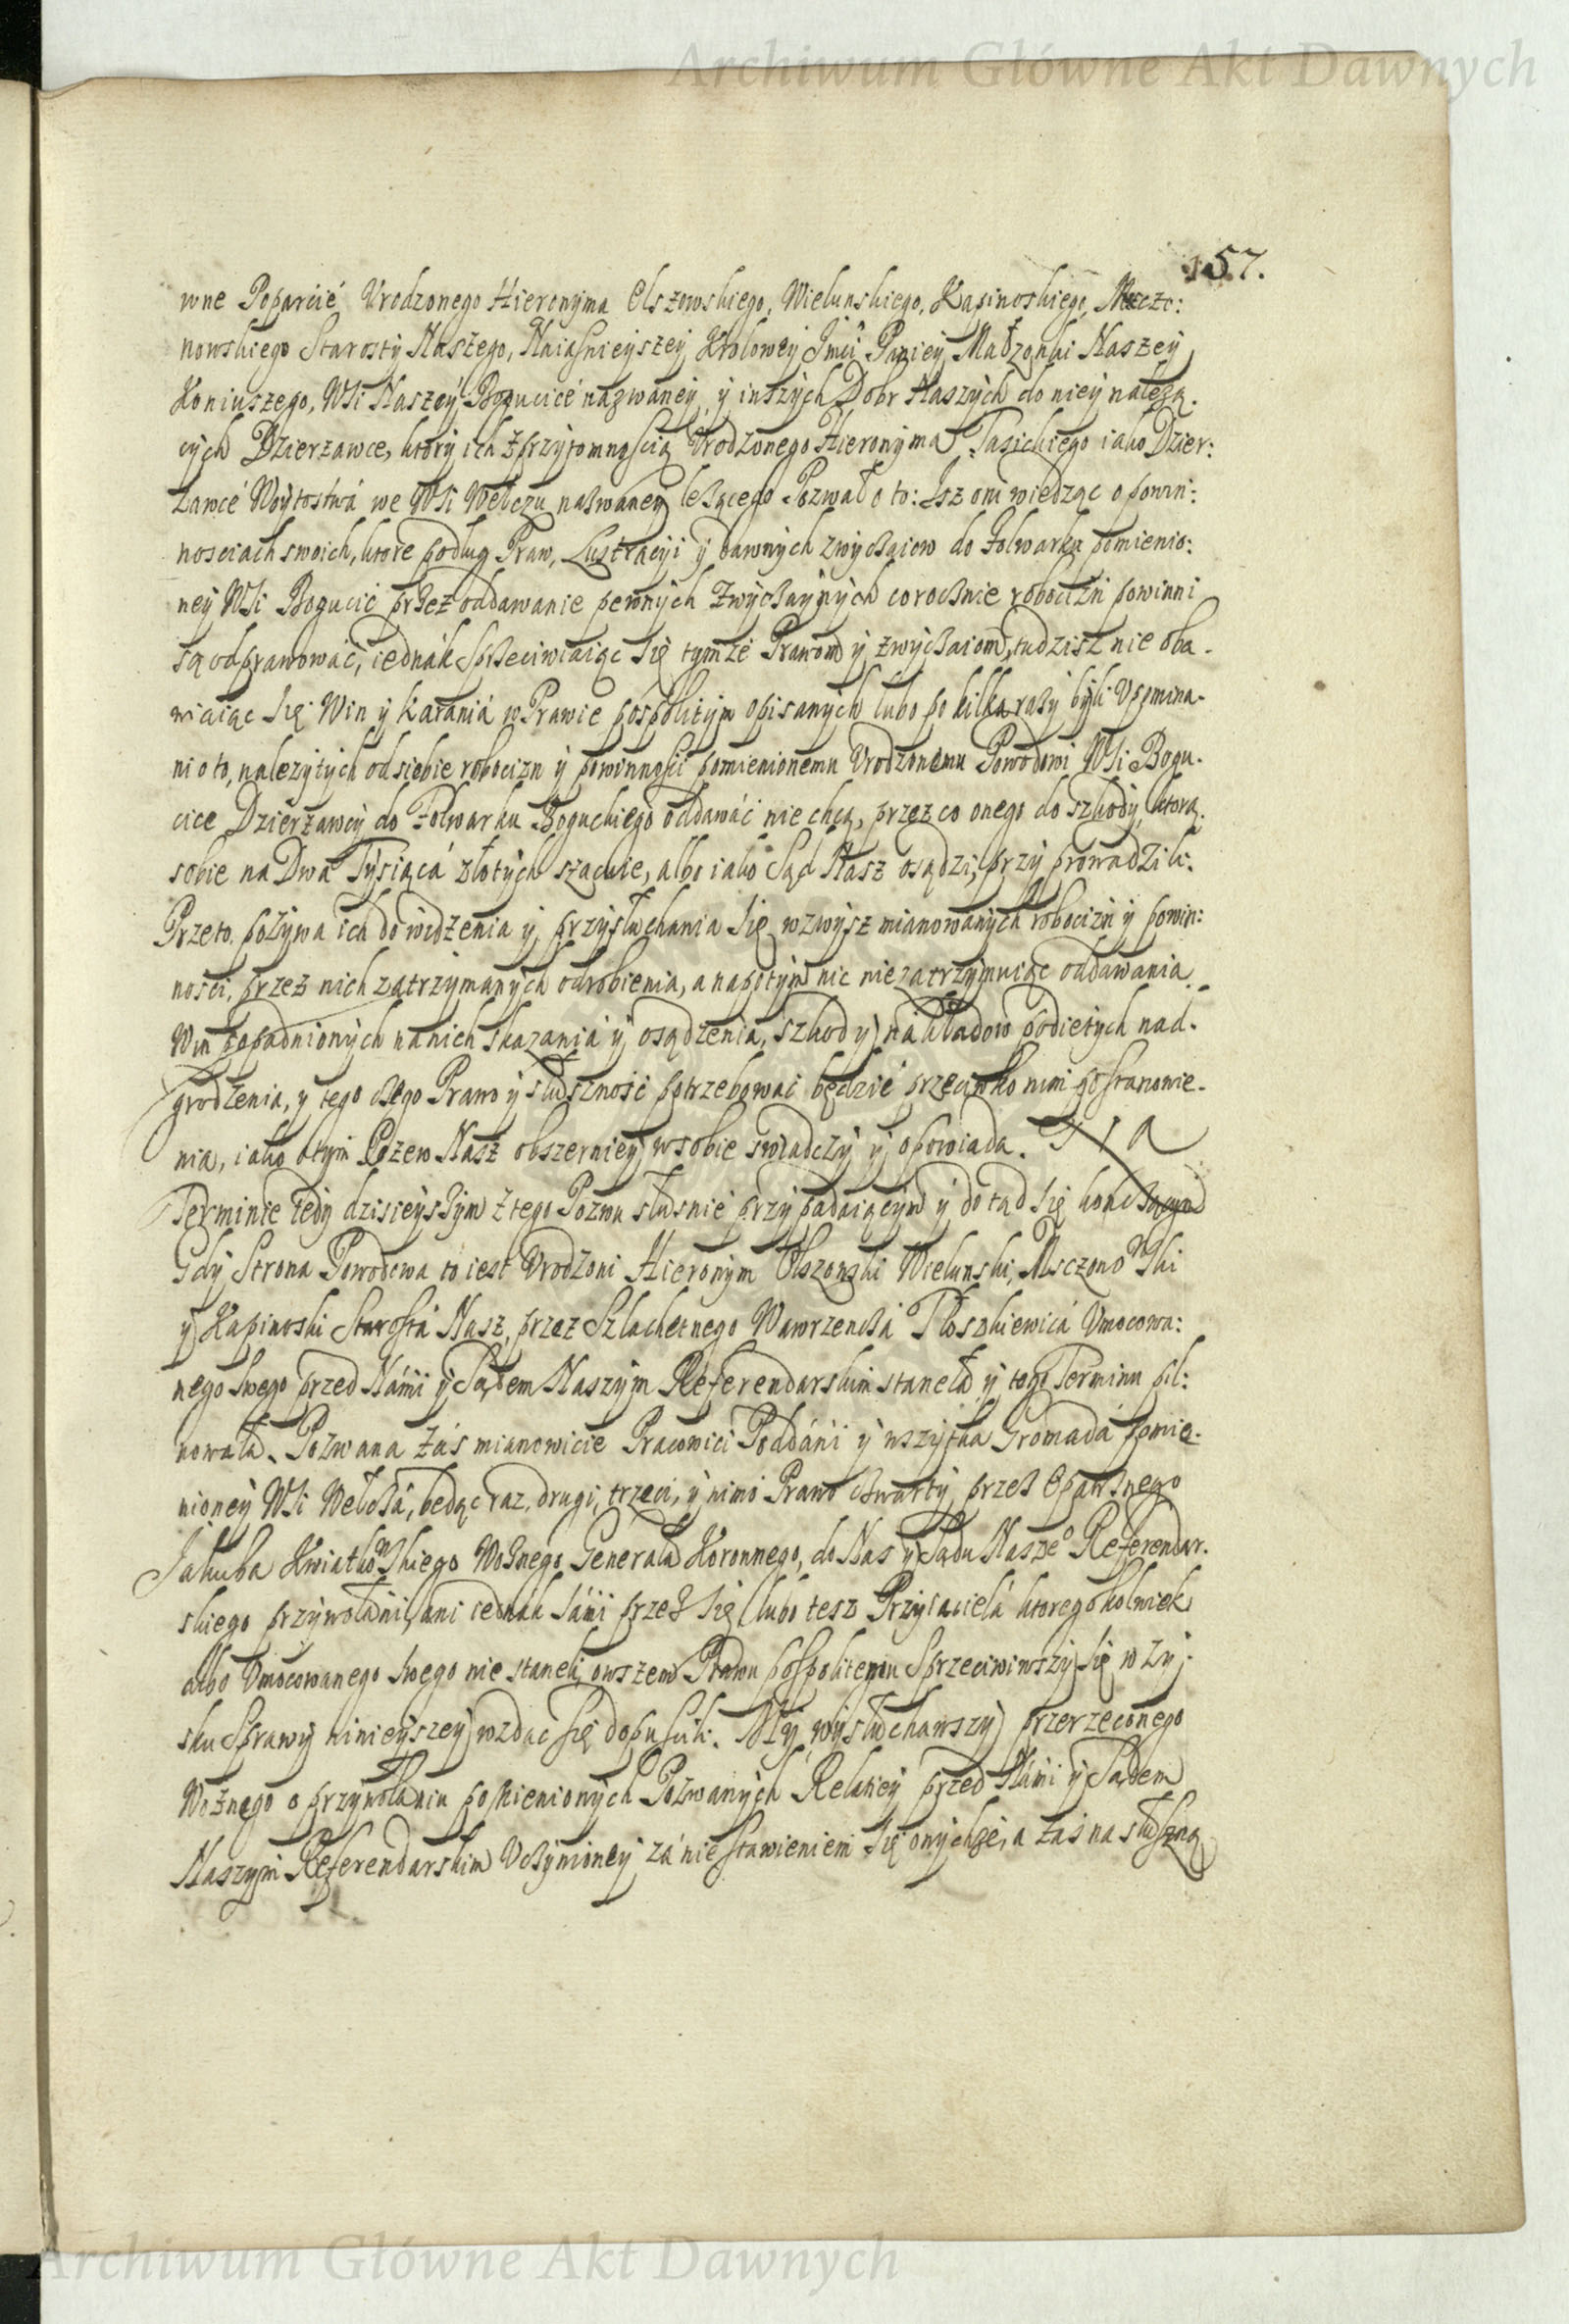 Archiwum Główne Akt Dawnych
157.
wne Poparcié Vrodzonego Hieronyma Olszowskiego, Wielunskiego, Kapinoskiego, Msczo:
nowskiego Starosty Naszego, Naiasnieyszey Krolowey Jmći Paniey Małzonki Naszey
Koniuszego, Wsi Naszey Bogucicé nazwaney, y inszych Dobr Naszych do niey nalezą.
cych Dzierzawce, ktory ich z przytomnoscią Vrodzonego Hieronyma Tasickiego iako Dzier:
zawcé Woytostwá we Wsi Welczu naswaney lezącego Pozwał o to: Isz oni wiedząc o powin:
nosciach swoich, ktore podług Praw, Lustracyi y dawnych zwyczaiow do folwarku pomienio:
ney Wsi Bogucic przez oddawanie pewnych zwyczaynych corocznie robocizn powinni
są odprawować, iednák sprzeciwiaiąc się tymze Prawom y zwyczaiom, tudzisz nie oba.
wiaiąc się Win y karania w Prawie pospolitym opisanych lubo po kilka razy byli Vpomina.
ni o to, nalezytych od siebie robocizn y powinnosci pomienionemu Vrodzonemu Powodowi Wsi Bogu.
cice Dzierzawcy do Folwarku Boguckiego oddawáć nie chcą, przez co onego do szkody, ktorą
sobie na Dwa Tysiącá złotych szacuie, albo iako Sąd Nasz osądzi, przy prowadzili.
Przeto pozywa ich do widzenia y przysłuchania się wzwysz mianowanych robocizn y powin:
ności, przez nich zatrzymanych odrobienia, a napotym nic niezatrzymuiąc oddawania.
Win zapadnionych na nich skazania y osądzenia, szkody y nakładow podietych nad.
grodzenia, y tego czego Prawo y słuszność potrzebować będzié przeciwko nim postanowie.
nia, iako o tym Pozew Nasz obszerniey w sobie swiadczy y opowiada. N A
Terminie tedy dzisieyszym z tego Pozwu słusnié przypadaiącym y do tąd się kończącym
Gdy Strona Powodowa to iest Vrodzoni Hieronym Olszowski Wielunski, Msczonowski
y Kapinoski Starostá Nasz, przez Szlachetnego Wawrzencá Płoszkiewicá Vmocowa:
nego swego przed Námi y Sądem Naszym Referendarskim staneła y tego Terminu pil:
nowała. Pozwana záś mianowicie Pracowici Poddáni y wszytka Gromadá pomie.
nioney Wsi Welczá, będąc raz, drugi, trzeci, y nimo Prawo czwarty przez Opatrznego
Jakuba Kwiatkowskiego Woznego Generała Koronnego, do Nas y Sądu Naszego Referendar.
skiego przywołani, ani iednak sámi przez się lubo tesz Przyiacielá ktoregokolwiek
albo Vmocowanego swego nie staneli, owszem Prawu pospolitemu sprzeciwiwszy się w zy.
sku Sprawy ninieyszey wzdać się dopuscili. My wysłuchawszy przerzeconego
Woźnego o przywołaniu pomienionych Pozwanych Relatiey przed Námi y Sądem
Naszym Referendarskim Vczynioney zá nie stawieniem się onychże, a záś na słuszną
Archiwum Główne Akt Dawnych